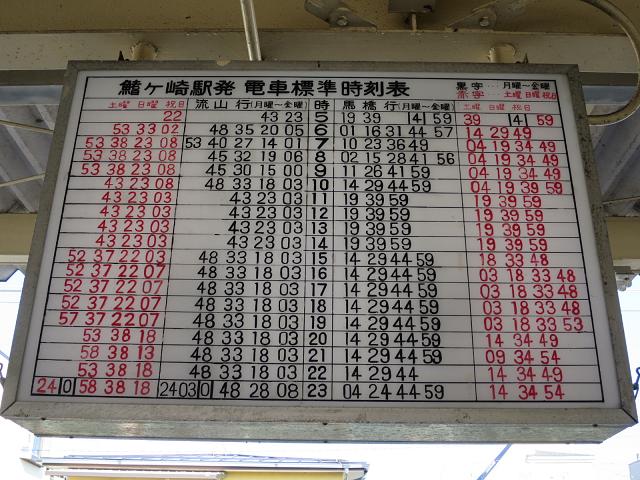 鰭ヶ崎駅発 電車標準時刻表
黒字…月曜〜金曜
赤字…土曜 日曜 祝日
土曜 日曜 祝日 流山行(月曜〜金曜) 時 馬橋行(月曜〜金曜) 土曜 日曜 祝日
22 43 23 5 19 39 |4| 59 39 |4| 59
53 33 02 48 35 20 05 6 01 16 31 44 57 14 29 49
53 38 23 08 53 40 27 14 01 7 10 23 36 49 04 19 34 49
53 38 23 08 45 32 19 06 8 02 15 28 41 56 04 19 34 49
53 38 23 08 45 30 15 00 9 11 26 41 59 04 19 34 49
43 23 08 48 33 18 03 10 14 29 44 59 04 19 39 59
43 23 03 43 23 03 11 19 39 59 19 39 59
43 23 03 43 23 03 12 19 39 59 19 39 59
43 23 03 43 23 03 13 19 39 59 19 39 59
43 23 03 43 23 03 14 19 39 59 19 39 59
52 37 22 03 48 33 18 03 15 14 29 44 59 18 33 48
52 37 22 07 48 33 18 03 16 14 29 44 59 03 18 33 48
52 37 22 07 48 33 18 03 17 14 29 44 59 03 18 33 48
52 37 22 07 48 33 18 03 18 14 29 44 59 03 18 33 48
57 37 22 07 48 33 18 03 19 14 29 44 59 03 18 33 53
53 38 18 48 33 18 03 20 14 29 44 59 14 34 49
58 38 13 48 33 18 03 21 14 29 44 59 09 34 54
53 38 18 48 33 18 03 22 14 29 44 14 34 49
24|0|58 38 18 24 03|0|48 28 08 23 04 24 44 59 14 34 54